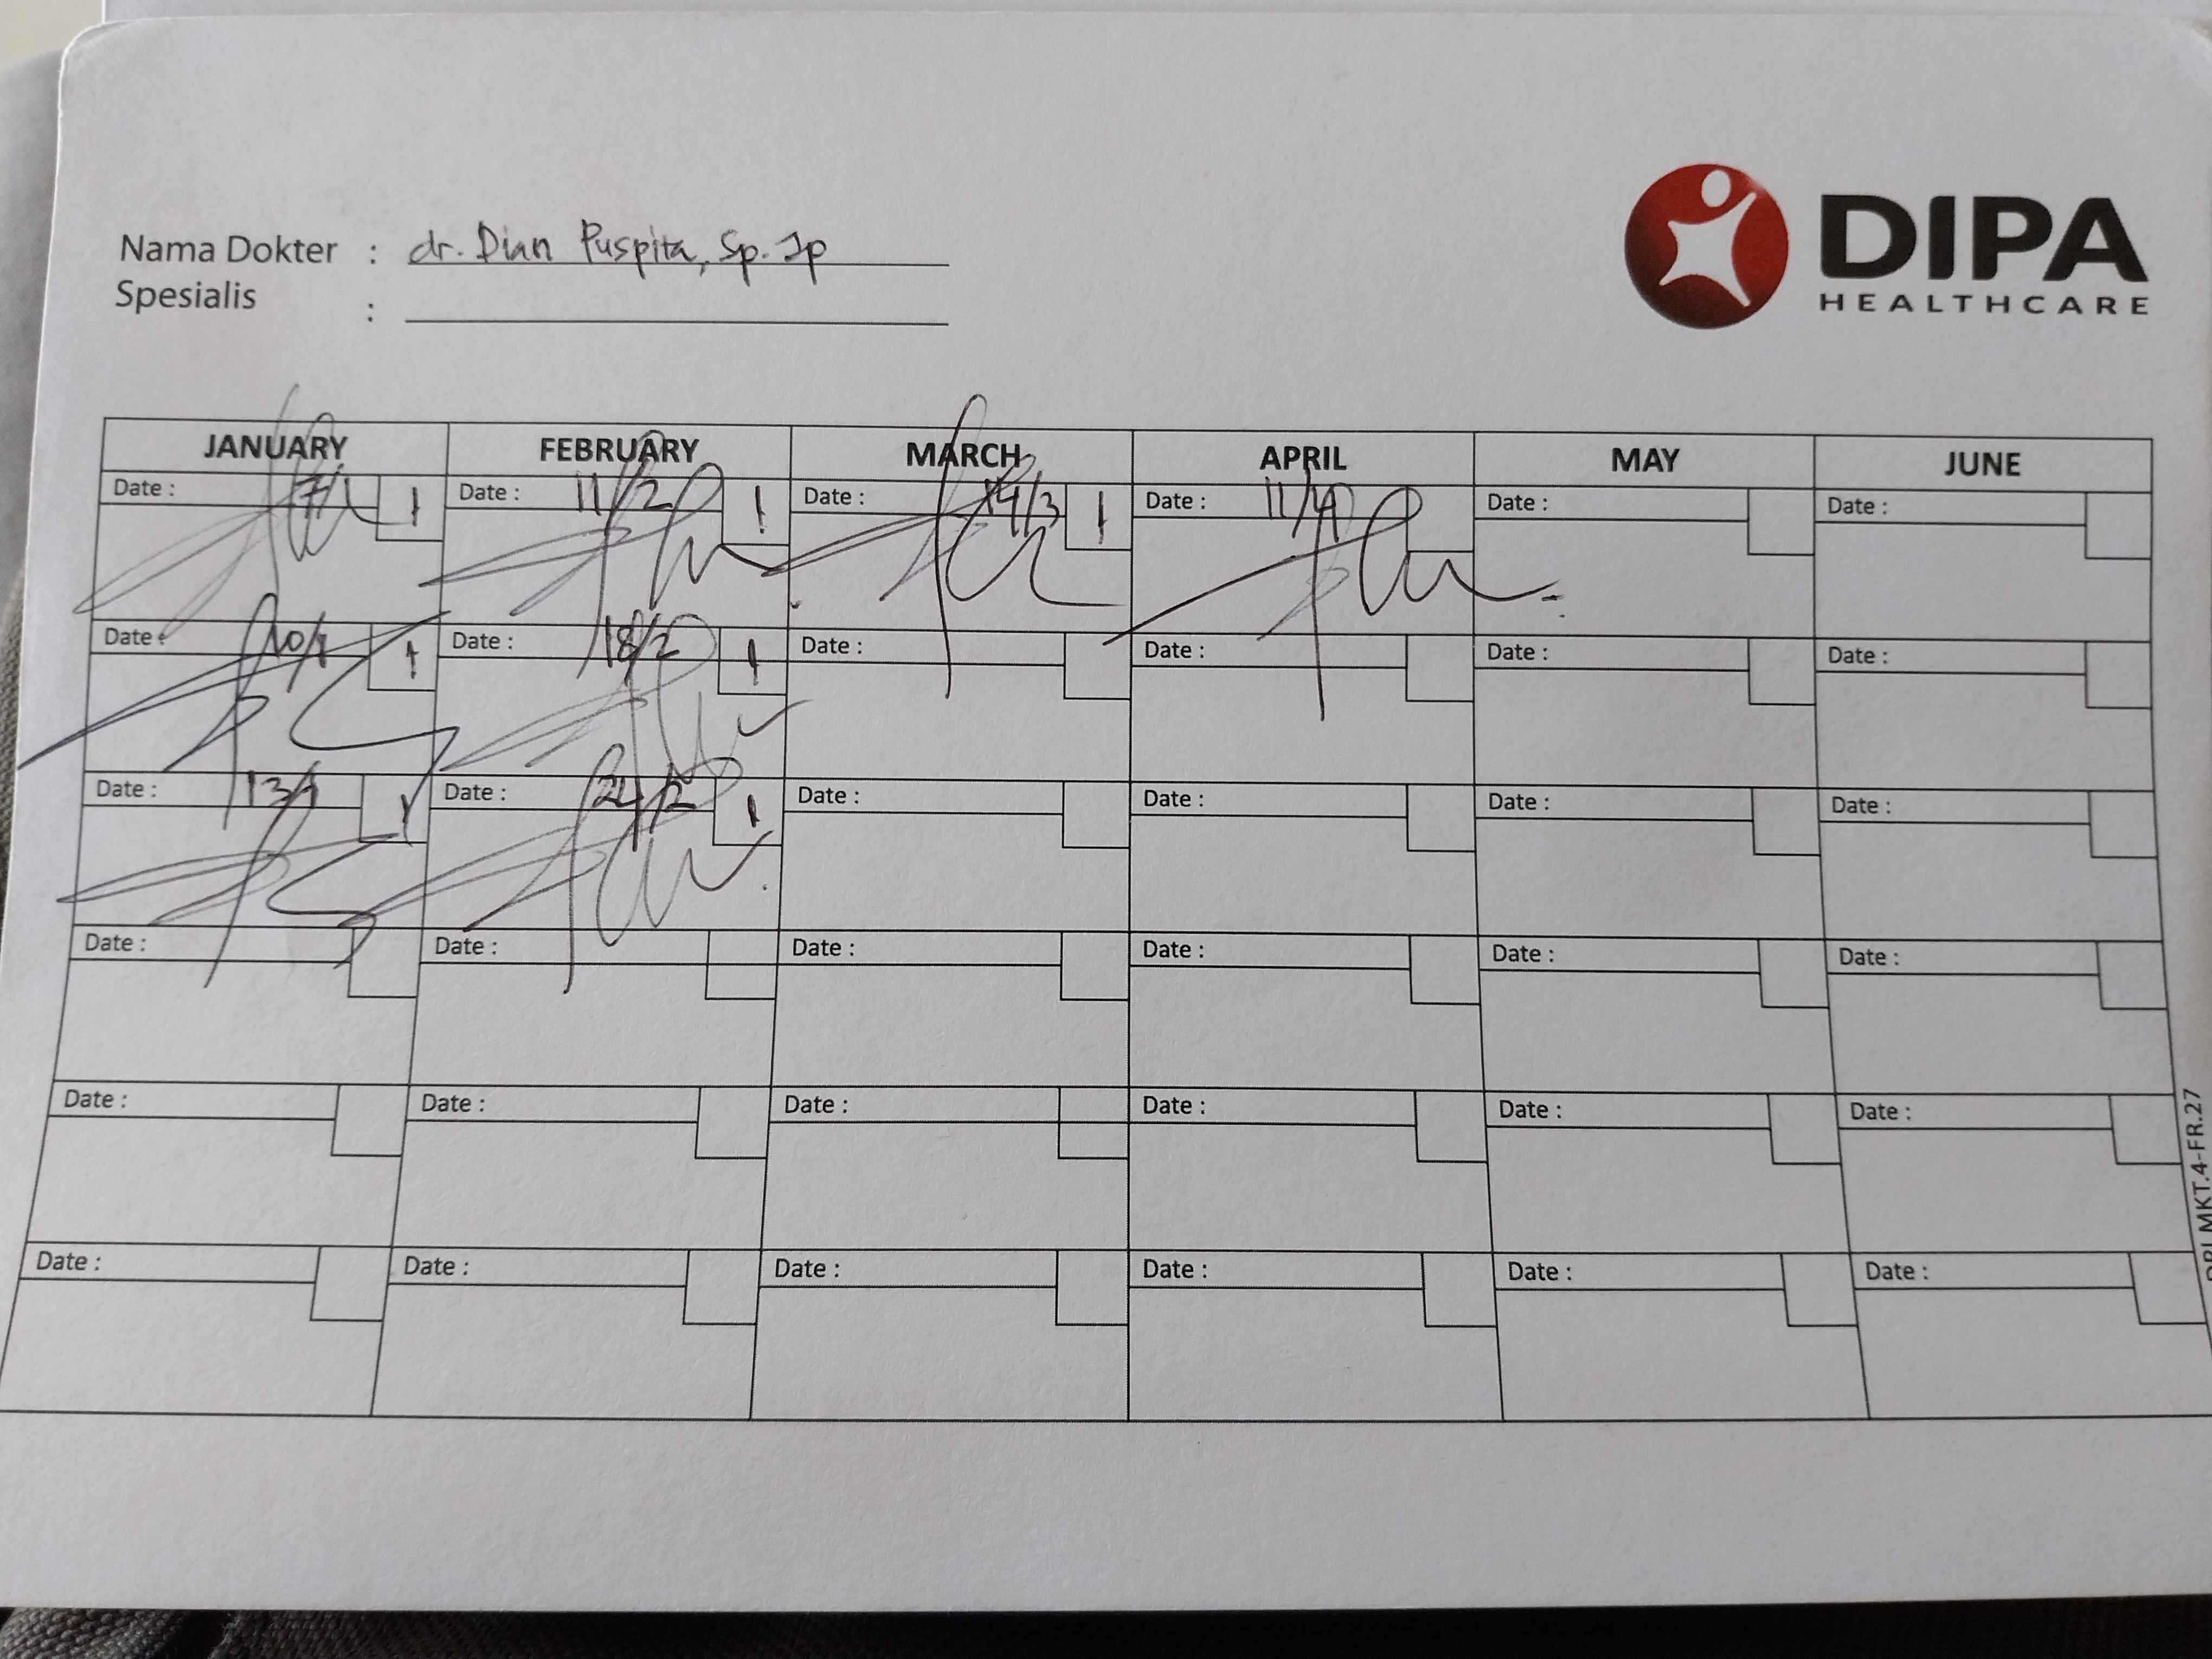 DIPA
HEALTHCARE
Nama Dokter : dr. Dian Puspita, Sp. Jp
Spesialis :
JANUARY FEBRUARY MARCH APRIL MAY JUNE
Date : 7/1 1 Date : 11/2 1 Date : 14/3 1 Date : 11/4 Date : Date :
Date : 10/1 1 Date : 18/2 1 Date : Date : Date : Date :
Date : 13/1 1 Date : 24/2 1 Date : Date : Date : Date :
Date : Date : Date : Date : Date : Date :
Date : Date : Date : Date : Date : Date :
Date : Date : Date : Date : Date : Date :
MKT.4-FR.27